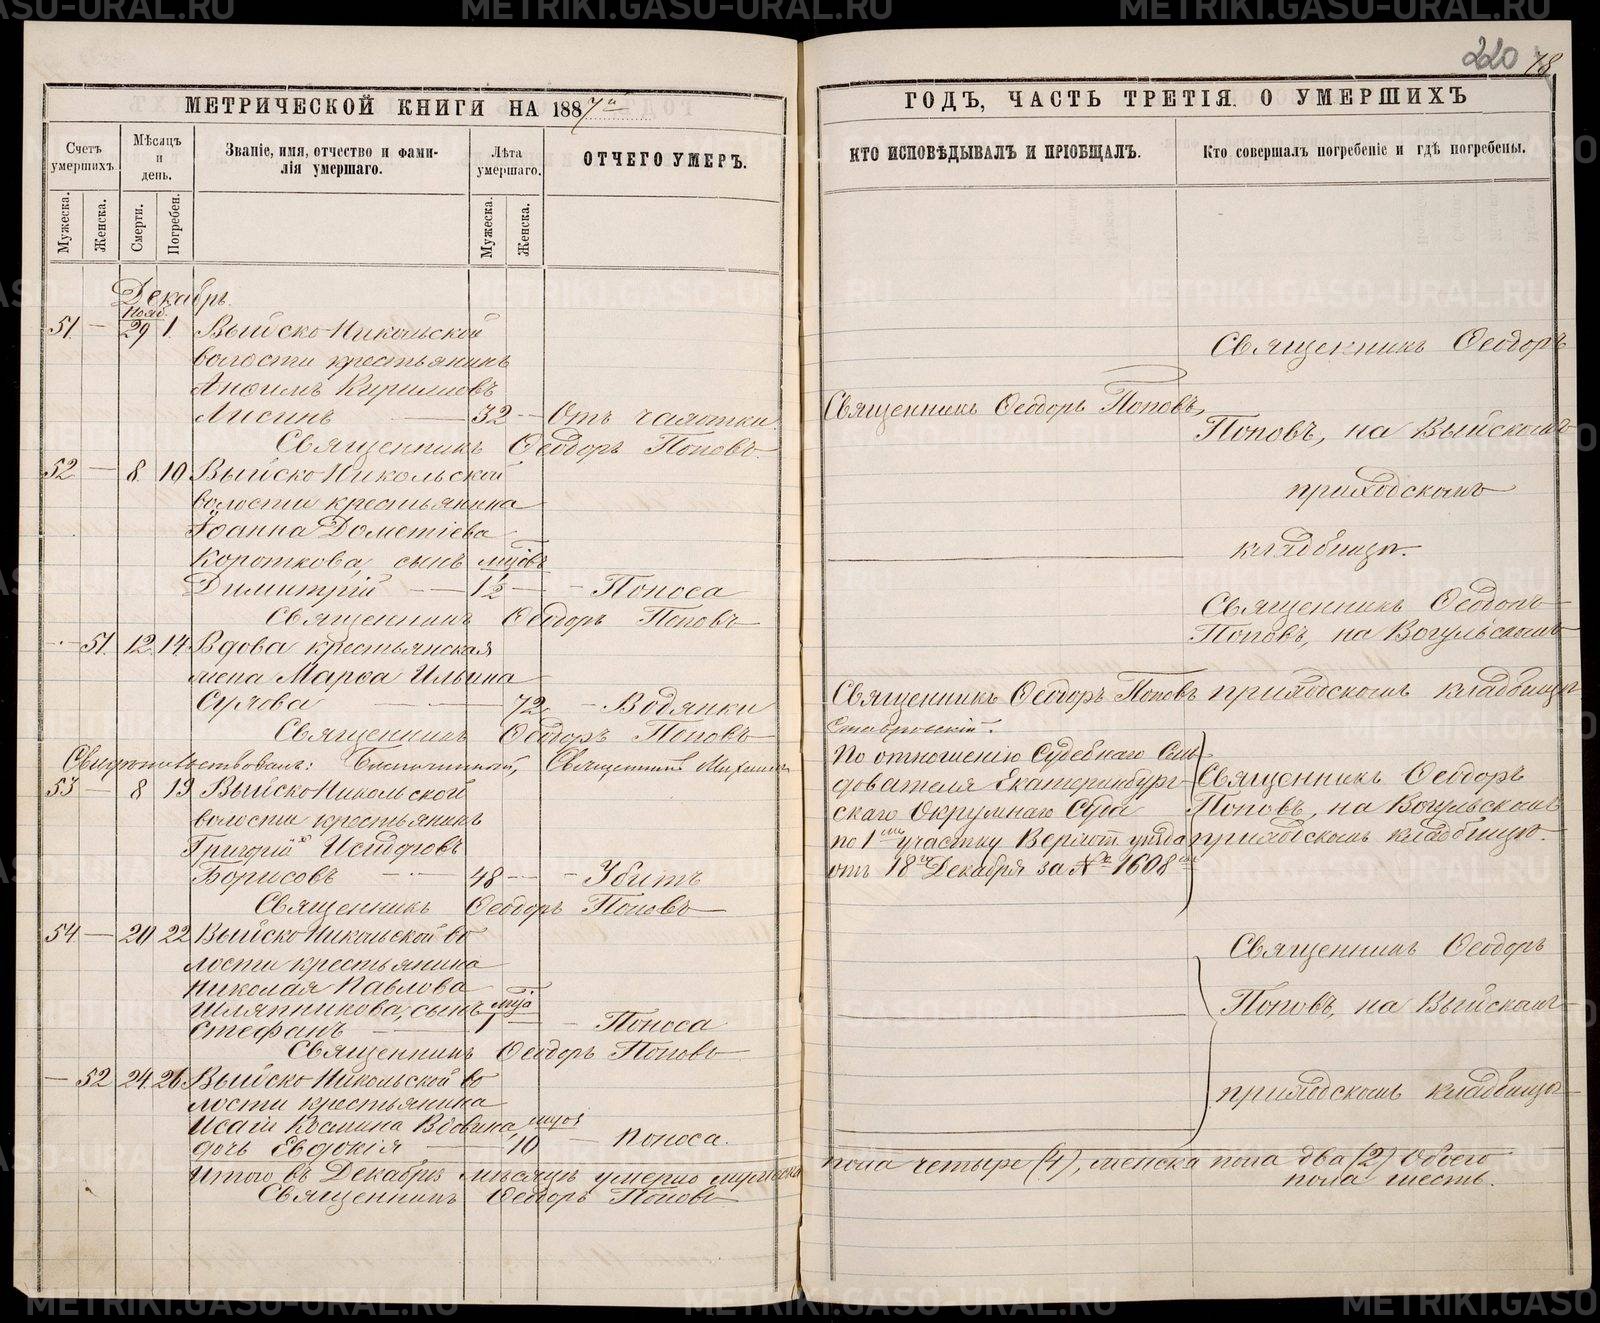 220 78
МЕТРИЧЕСКОЙ КНИГИ НА 1887й
Счетъ умершихъ.
Мѣсяцъ и день.
Званіе, имя, отчество и фами-
лія умершаго.
Лѣта умершаго.
ОТЧЕГО УМЕРЪ.
Мужеска.
Женска.
Смерти.
Погребен.
Мужеска.
Женска.
Декабрь.
Нояб.
51. — 29 1. Выйско Никольской
волости крестьянинъ
Анѳимъ Кирилловъ
Лисинъ — 32 — Отъ чахотки
Священникъ Ѳеодоръ Поповъ.
52 — 8. 10 Выйско Никольской
волости крестьянина
Іоанна Дометіева
Короткова, сынъ мцовъ
Димитрій — 1½ — Поноса
Священникъ Ѳеодоръ Поповъ
— 51. 12. 14 Вдова крестьянская
жена Марѳа Ильина
72 — Водянки
Священникъ Ѳеодоръ Поповъ
Священникъ Михаилъ
53 — 8 19 Выйско Никольской
волости крестьянинъ
Григорій Исидоровъ
Борисовъ — 48 — Убитъ
Священникъ Ѳеодоръ Поповъ
54 — 20 22 Выйско Никольской во
лости крестьянина
Николая Павлова
Шляпникова, сынъ мца
Стефанъ — 1 — Поноса
Священникъ Ѳеодоръ Поповъ
— 52 24 26 Выйско Никольской во
лости крестьянина
Исаіи Космина Вдовина мцов
дочь Евдокія — 10 — Поноса.
Итого въ Декабрѣ мѣсяцѣ умерло мужеска
Священникъ Ѳеодоръ Поповъ
ГОДЪ, ЧАСТЬ ТРЕТІЯ. О УМЕРШИХЪ
КТО ИСПОВѢДЫВАЛЪ И ПРІОБЩАЛЪ.
Кто совершалъ погребеніе и гдѣ погребены.
Священникъ Ѳеодоръ
Священникъ Ѳеодоръ Поповъ,
Поповъ, на Выйскомъ
приходскомъ
кладбищѣ.
Священникъ Ѳеодоръ
Поповъ, на Вогульскомъ
Священникъ Ѳеодоръ Поповъ приходскомъ кладбищѣ
Ставровскій.
По отношенію Судебнаго Слѣ-
дователя Екатеринбург- Священникъ Ѳеодоръ
скаго Окружнаго Суда Поповъ, на Вогульскомъ
по 1му участку Верхот. уѣзда приходскомъ кладбищѣ.
отъ 18го Декабря за № 1608мъ
Священникъ Ѳеодоръ
Поповъ, на Выйскомъ
приходскомъ кладбищѣ
пола четыре (4), женска пола два (2) Обоего
пола шесть.